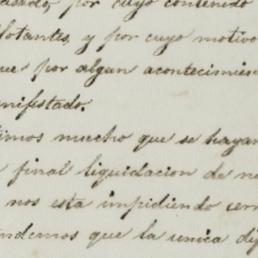 pasado, por cuyo contenido
flotantes, y por cuyo motivo
que por algun acontecimien
anifestado.
timos mucho que se hayan
final liquidacion de n
nos esta impidiendo cerr
ndemos que la unica di